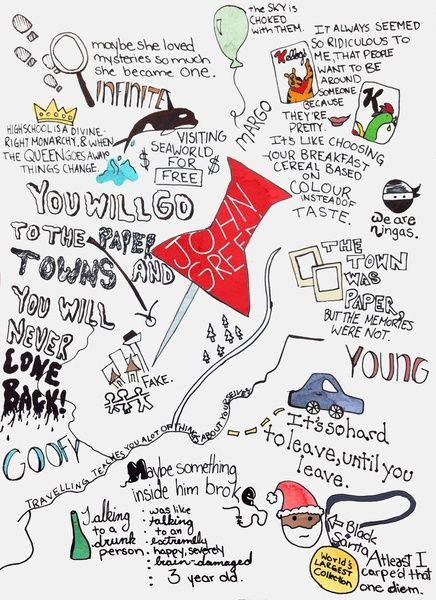 the SKY is
CHOKED
with THEM.
maybe she loved
mysteries so much
she became one.
INFINITE
MARGO
IT ALWAYS SEEMED
SO RIDICULOUS TO
ME, THAT PEOPLE
WANT TO BE
AROUND
SOMEONE
BECAUSE
THEY'RE
PRETTY.
IT'S LIKE CHOOSING
YOUR BREAKFAST
CEREAL BASED
ON
COLOUR
INSTEAD OF
TASTE.
Kelloggs
K
HIGHSCHOOL IS A DIVINE-
RIGHT MONARCHY, & WHEN
THE QUEEN GOES AWAY
THINGS CHANGE.
$ VISITING $
SEAWORLD
FOR
FREE
we are
ningas.
YOU WILL GO
TO THE PAPER
TOWNS AND
YOU WILL
NEVER
COME
BACK!
JOHN
GREEN
THE
TOWN
WAS
PAPER,
BUT THE MEMORIES
WERE NOT.
FAKE.
YOUNG
GOOFY
TRAVELLING TEACHES YOU A LOT OF THINGS ABOUT YOURSELVES
It's so hard
to leave, until you
leave.
Maybe something
inside him broke
Talking
to a
drunk
person
was like
talking
to an
extremely
happy, severely
brain-damaged
3 year old.
Black
Santa
WORLD'S
LARGEST
Collection
Atleast I
carpe'd that
one diem.